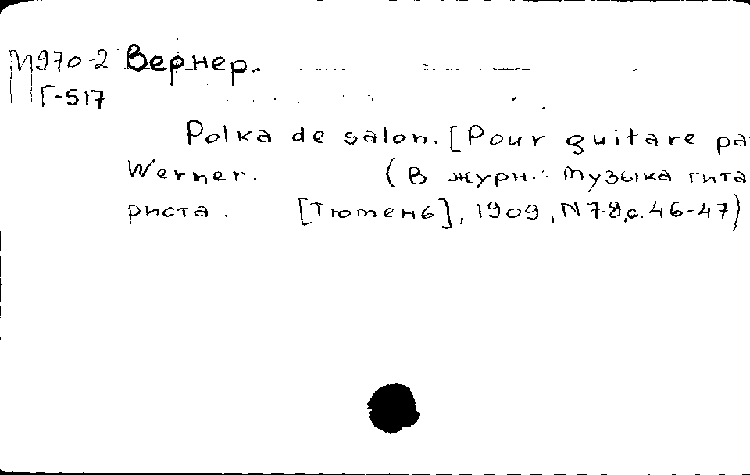 М970-2 Вернер.
Г-517
Polka de salon. [Pour guitare pa
Werner. (В журн.: Музыка гита
риста. [Тюмень], 1909, N 7-8, с. 46-47)